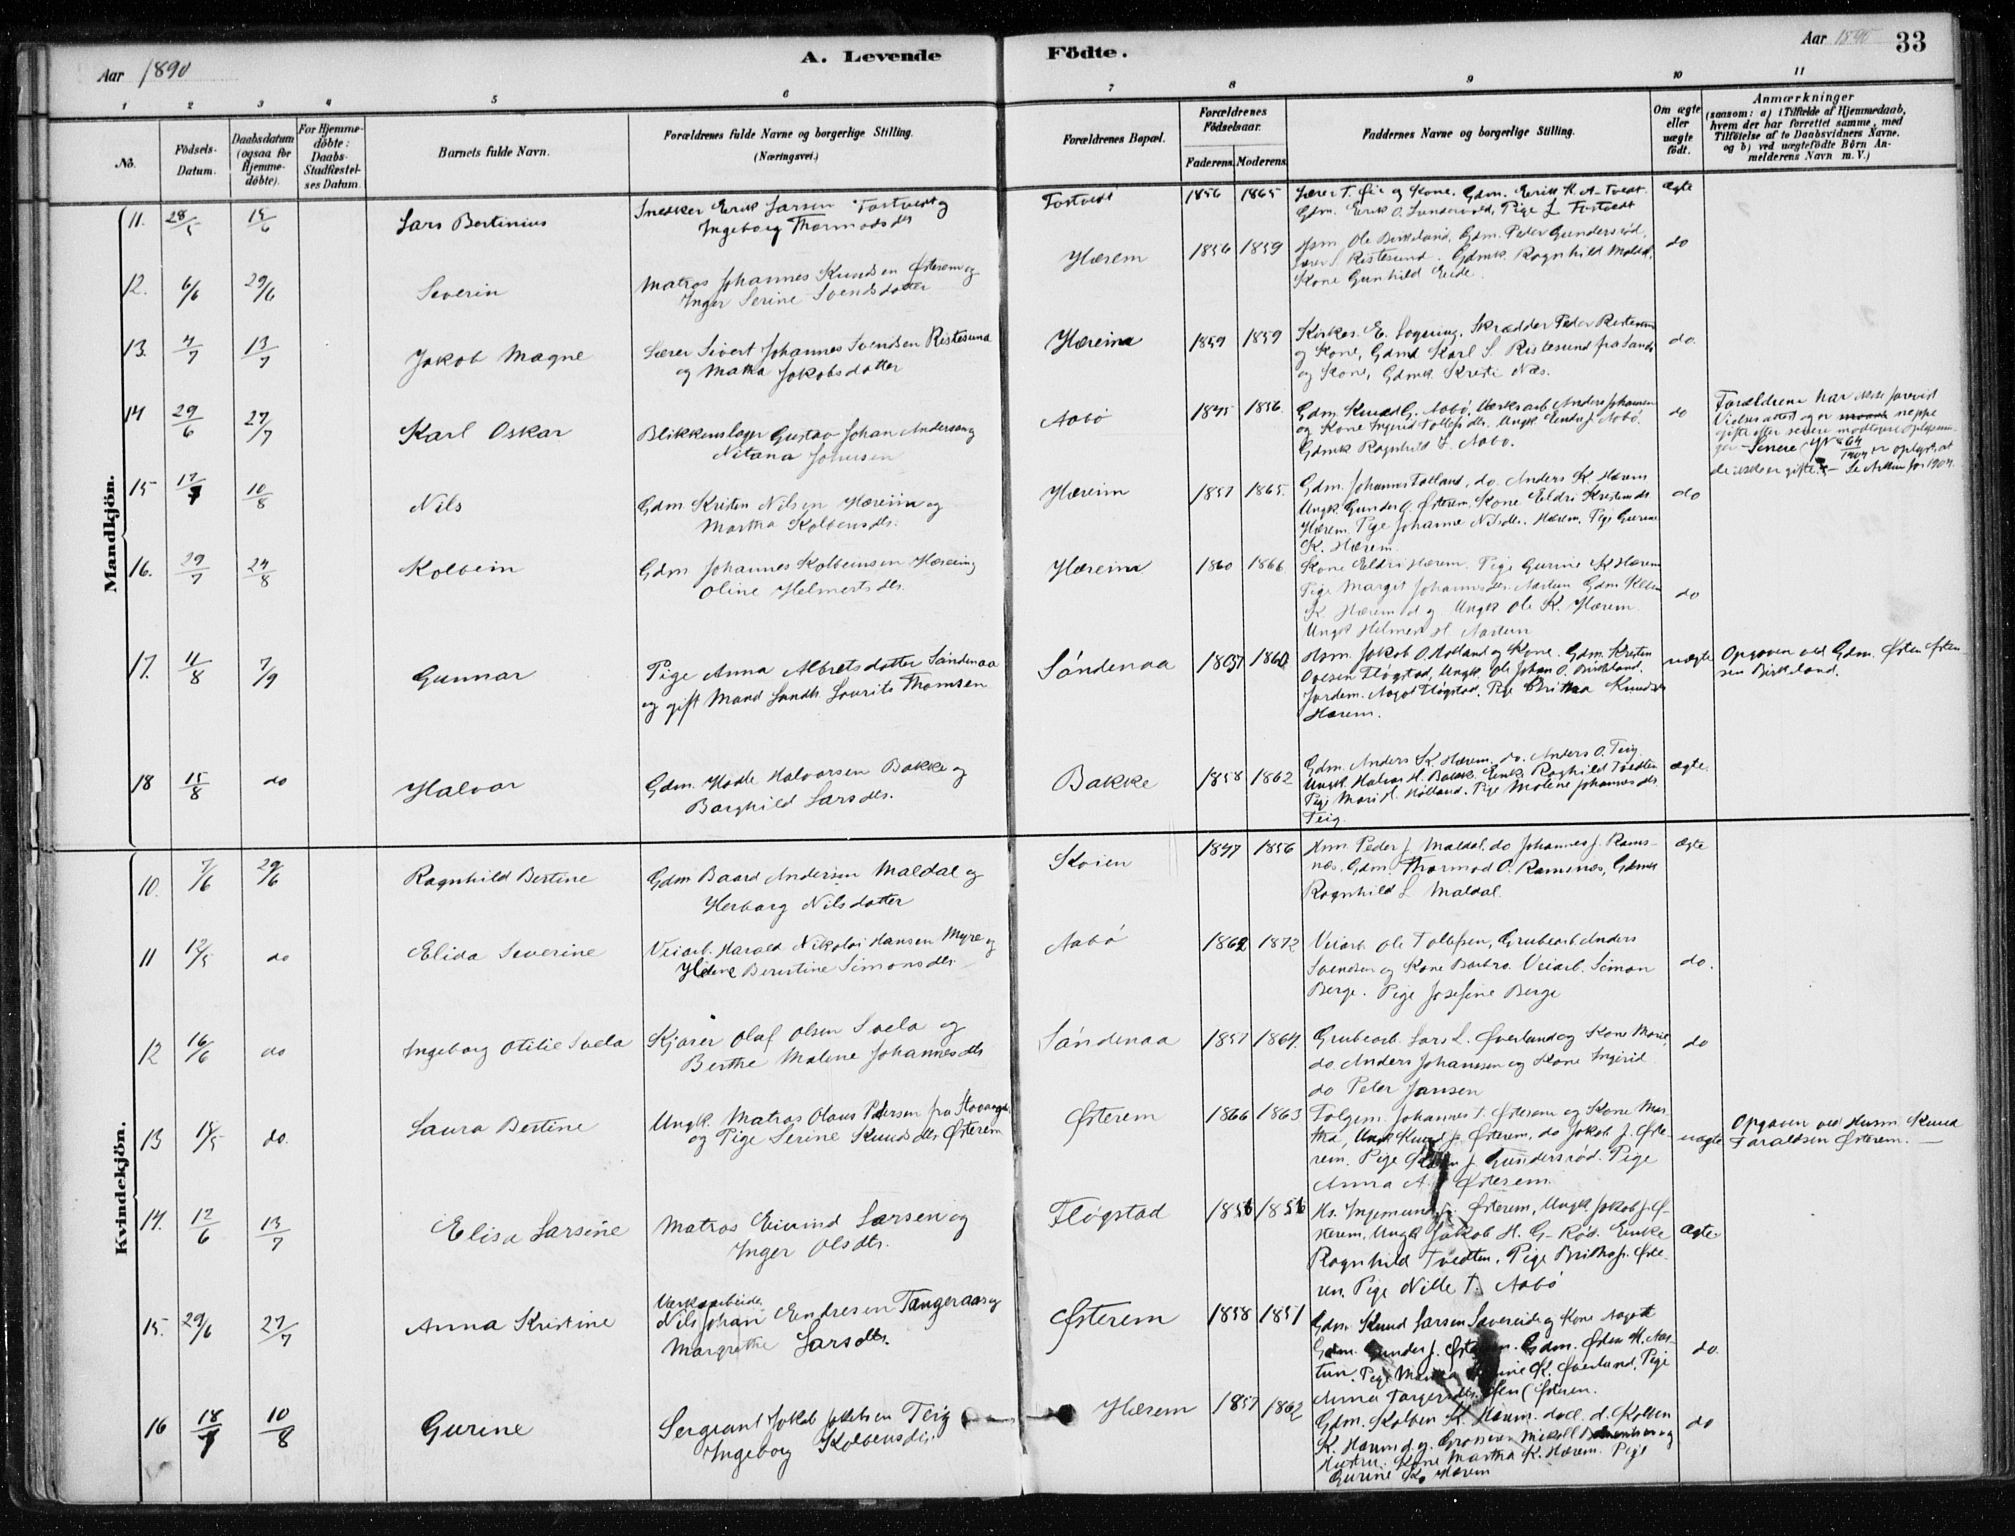 Aar 1890
A. Levende Födte.
Aar 1890 33
1 2 3 4 5 6 7 8 9 10 11
No.
Födsels-Datum.
Daabsdatum (ogsaa for Hjemme-døbte).
For Hjemme-døbte: Daabs-Stadfæstel-ses Datum.
Barnets fulde Navn.
Forældrenes fulde Navne og borgerlige Stilling.
(Næringsvei.)
Forældrenes Bopæl.
Forældrenes Födselsaar.
Faderens. Moderens.
Faddernes Navne og borgerlige Stilling.
Om ægte eller uægte født.
Anmærkninger
(saasom: a) i Tilfælde af Hjemmedaab,
hvem der har forrettet samme, med
Tilföielse af to Daabsvidners Navne.
og b) ved uægtefødte Börn An-
melderens Navn m. V.)
Mandkjön.
11. 28/5 15/6 Lars Bertinius
Snedker Erik Larsen Tostvedt og
Ingeborg Thormodsdtr
Tostvedt 1856 1865
Lærer T. Øie og Kone. Gdm. Erik K. A- Tvedt
Gdm. Erik O. Sundervold, Pige J. Tostvedt
ægte
12. 6/6 29/6 Severin
Matros Johannes Knudsen Østerem og
Inger Serine Svendsdatter
Hærem 1856 1859
Hsm. Ole Birkeland, Gdm. Peder Gundersrød,
Lærer S. Ristesund. Gdmk. Ragnhild Maldal,
Kone Gunhild Eide.
do
13. 4/7 13/7 Jakob Magne
Lærer Sivert Johannes Svendsen Ristesund
og Matha Jakobsdatter
Hæreim 1859 1859
Kirkes. E. Sogering, Skrædder Peder Ristesund
og Kone, Gdmd Karl S. Ristesund fra Sande
og Kone, Gdmk. Kristi Næs.
do.
14 29/6 27/7 Karl Oskar
Blikkenslager Gustav Johan Andersen og
Nitana Johnsen
Aabø 1845 1856.
Gdm. Knud G. Aabø, Værksarb. Anders Johannesen
og Kone Ingrid Tollefsdtr. Ungk. Endre J. Aabø.
Gdmk Ragnhild T. Aabø.
do
Forældrene har ikke forevist
Vielsesattest og er neppe
gifte efter senere modtagne Oplysnin-
ger - Senere (JNo 64/1904) er oplyst, at
de ikke er gifte. - Se Akten for 1904.
15 17/7 10/8 Nils
Gdm Kristen Nilsen Hæreim og
Martha Kolbensdtr.
Hæreim 1857 1865.
Gdm. Johannes Tolland, do. Anders K. Hærem
Ungk Gunder O. Østerem, Kone Eldri Kristensdtr.
Hærem. Pige Johanne Nilsdtr. Hærem. Pige Gurine
K. Hærem.
do
16. 29/7 24/8 Kolbein
Gdm Johannes Kolbeinsen Hæreim og
Oline Helmertsdtr.
Hæreim 1860 1866
Kone Eldri Hærem. Pige Gurine K Hærem
Pige Margit Johannesdtr. Aartun Gdm Kolben
K. Hærem d.y. Ungk Ole K. Hærem.
Ungk Helmert H. Aartun
do
17. 11/8 7/9 Gunnar
Pige Anna Albretsdatter Söndenaa
og gift Mand Landh Lauritz Thomsen
Söndenaa 1857 1860
Hsm. Jakob O. Holland og Kone. Gdm. Kristen
Ovesen Fløgstad, Ungk. Ole Johan O. Birkeland.
Jordem. Aagot Fløgstad. Pige Britha Knudsdtr
Hærem.
uægte
Opgaven ved Gdm. Østen Østen-
sen Birkeland.
18 15/8 do Halvar
Gdm. Hadle Halvarsen Bakke og
Borghild Larsdtr.
Bakke 1858 1862
Gdm. Anders K Hærem. do. Anders O. Teig
Ungk. Halvar H. Bakke. Enke Ragnhild Tvedten
Pige Mari H. Hølland. Pige Malene Johannesdtr.
Teig.
ægte.
Kvindekjön.
10. 7/6 29/6 Ragnhild Bertine
Gdm Baard Andersen Maldal og
Herborg Nilsdatter
Skoien 1847 1856
Hsm. Peder J. Maldal, do Johannes J. Rams-
næs. Gdm. Thormod O. Ramsnæs, Gdmk
Ragnhild L. Maldal.
ægte
11 12/5 do Elida Severine
Veiarb. Harald Nikolai Hansen Myre og
Helene Berentine Simonsdtr.
Aabø 1862 1872
Veiarb. Ole Tollefsen, Grubearb Anders
Svendsen og Kone Barbro. Veiarb. Simon
Berge. Pige Josefine Berge
do.
12 16/6 do Ingeborg Otilie Svela
Kjører Olaf Olsen Svela og
Berthe Malene Johannesdtr
Söndenaa 1857 1864.
Grubearb. Lars L. Øverland og Kone Marie,
do. Anders Johannesen og Kone Ingrid
do Peter Jansen
do
13 18/5 do. Laura Bertine
Ungk. Matros Olaus Petersen fra Stavanger
og Pige Serine Knudsdtr Østerem
Østerem 1866 1863
Folgem. Johannes T. Østerem og Kone Mar-
tha, Ungk Knud J. Østerem, do Jakob J. Øste-
rem. Pige Karen J. Gundersrød. Pige
Anna A. Østerem.
uægte
Opgaven ved Husm. Knud
Taraldsen Østerem. -
14. 12/6 13/7 Elisa Larsine
Matros Eivind Larsen og
Inger Olsdtr.
Fløgstad 1856 1856
Ks. Ingemund J. Østerem, Ungk Jakob J. Ø-
sterem, Ungk Jakob H. G- Rød. Enke
Ragnhild Tvedten, Pige Britha J. Øste-
rem. Pige Nille T. Aabø
ægte
15. 29/6 27/7 Anna Kristine
Værksarbeider
Nils Johan Endresen Tangeraas og
Margrethe Larsdtr.
Østerem 1858 1857
Gdm. Knud Larsen Sævereide og Kone Aagot
Gdm. Gunder J. Østerem. Gdm. Østen H. Aar-
tun. Pige Martha Serine K. Øverland, Pige
Anna Torgersdtr. Østerem.
do.
16 18/7 10/8 Gurine
Sergeant Jakob Jakobsen Teig
Ingeborg Kolbensdtr.
Hærem 1857 1862
Gdm. Kolben K. Hærem. d.æl. d. Kolben
K. Hærem d.y. Grosserer Mikall og
Hustru. Kone Martha K. Hærem. Pige
Gurine K. Hærem
do